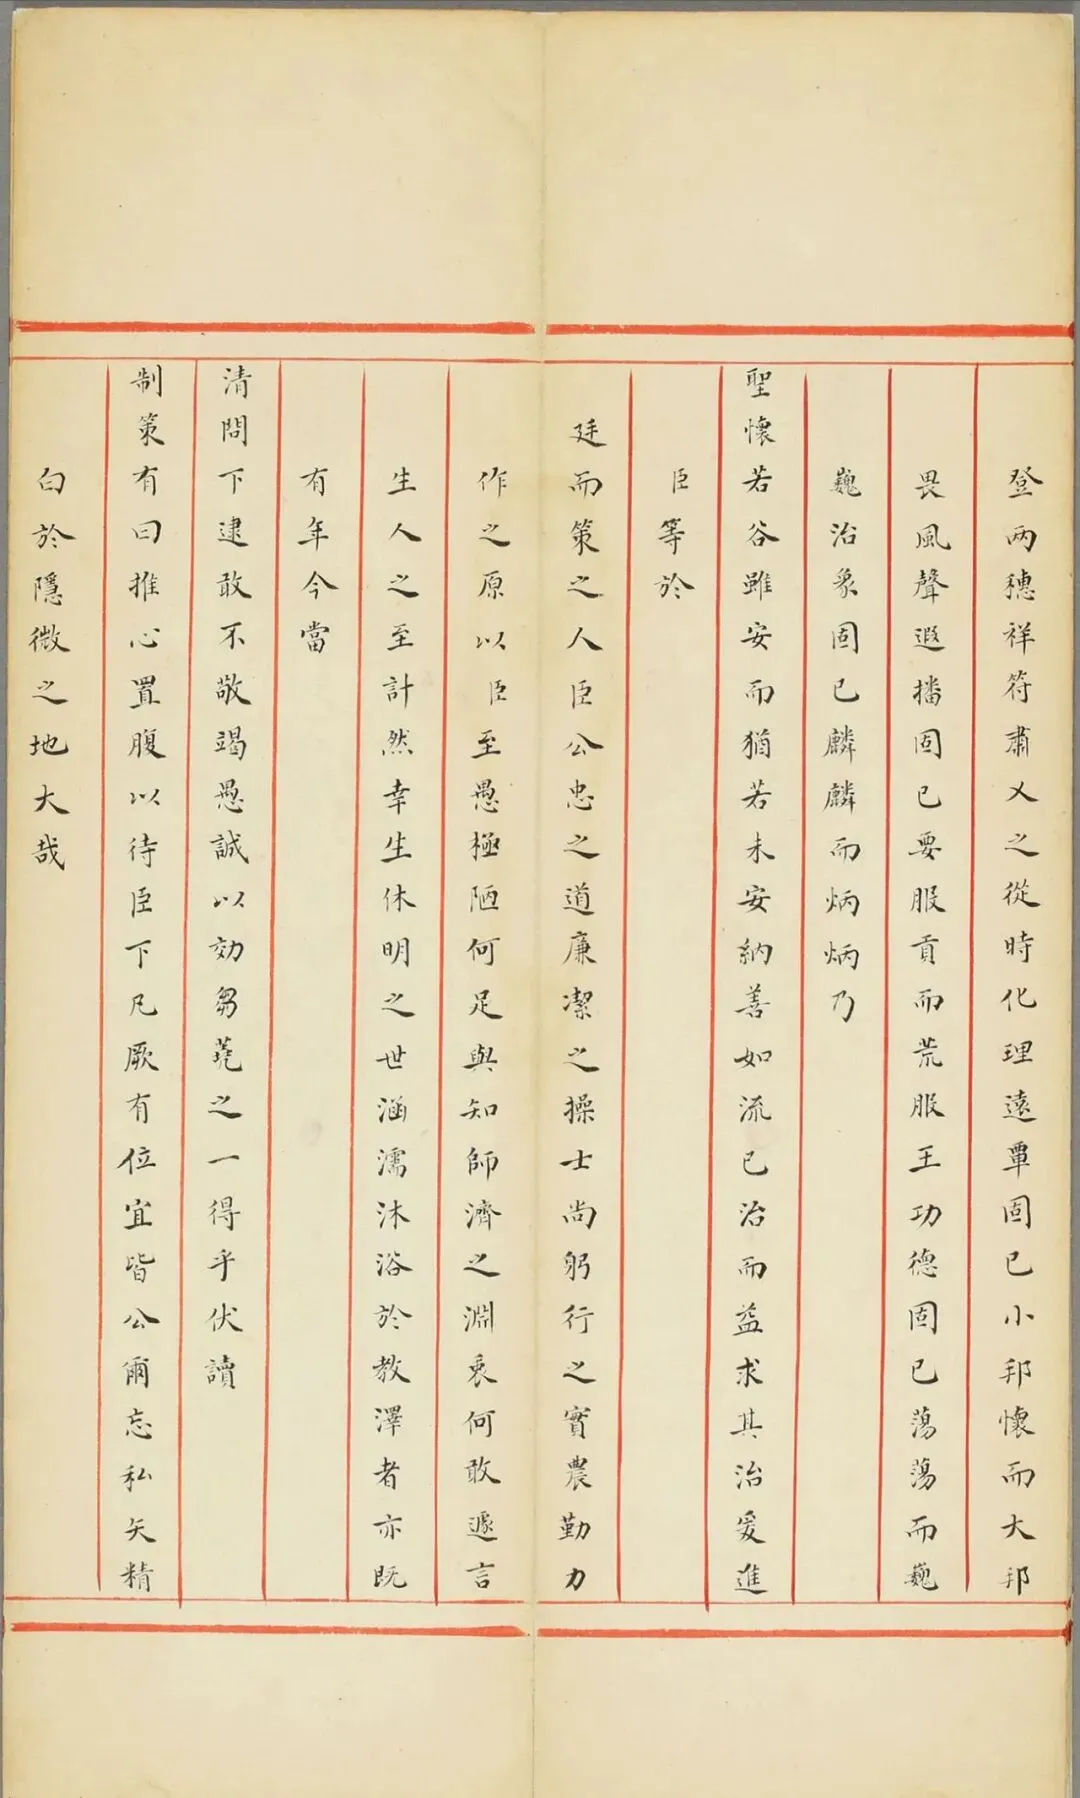 登兩穗祥符肅乂之從時化理遠覃固已小邦懷而大邦
畏風聲遐播固已要服貢而荒服王功德固已蕩蕩而巍
巍治象固已麟麟而炳炳乃
聖懷若谷雖安而猶若未安納善如流已治而益求其治爰進
臣等於
廷而策之人臣公忠之道廉潔之操士尚躬行之實農勤力
作之原以臣至愚極陋何足與知師濟之淵衷何敢遽言
生人之至計然幸生休明之世涵濡沐浴於教澤者亦既
有年今當
清問下逮敢不敬竭愚誠以効芻蕘之一得乎伏讀
制策有曰推心置腹以待臣下凡厥有位宜皆公爾忘私矢精
白於隱微之地大哉